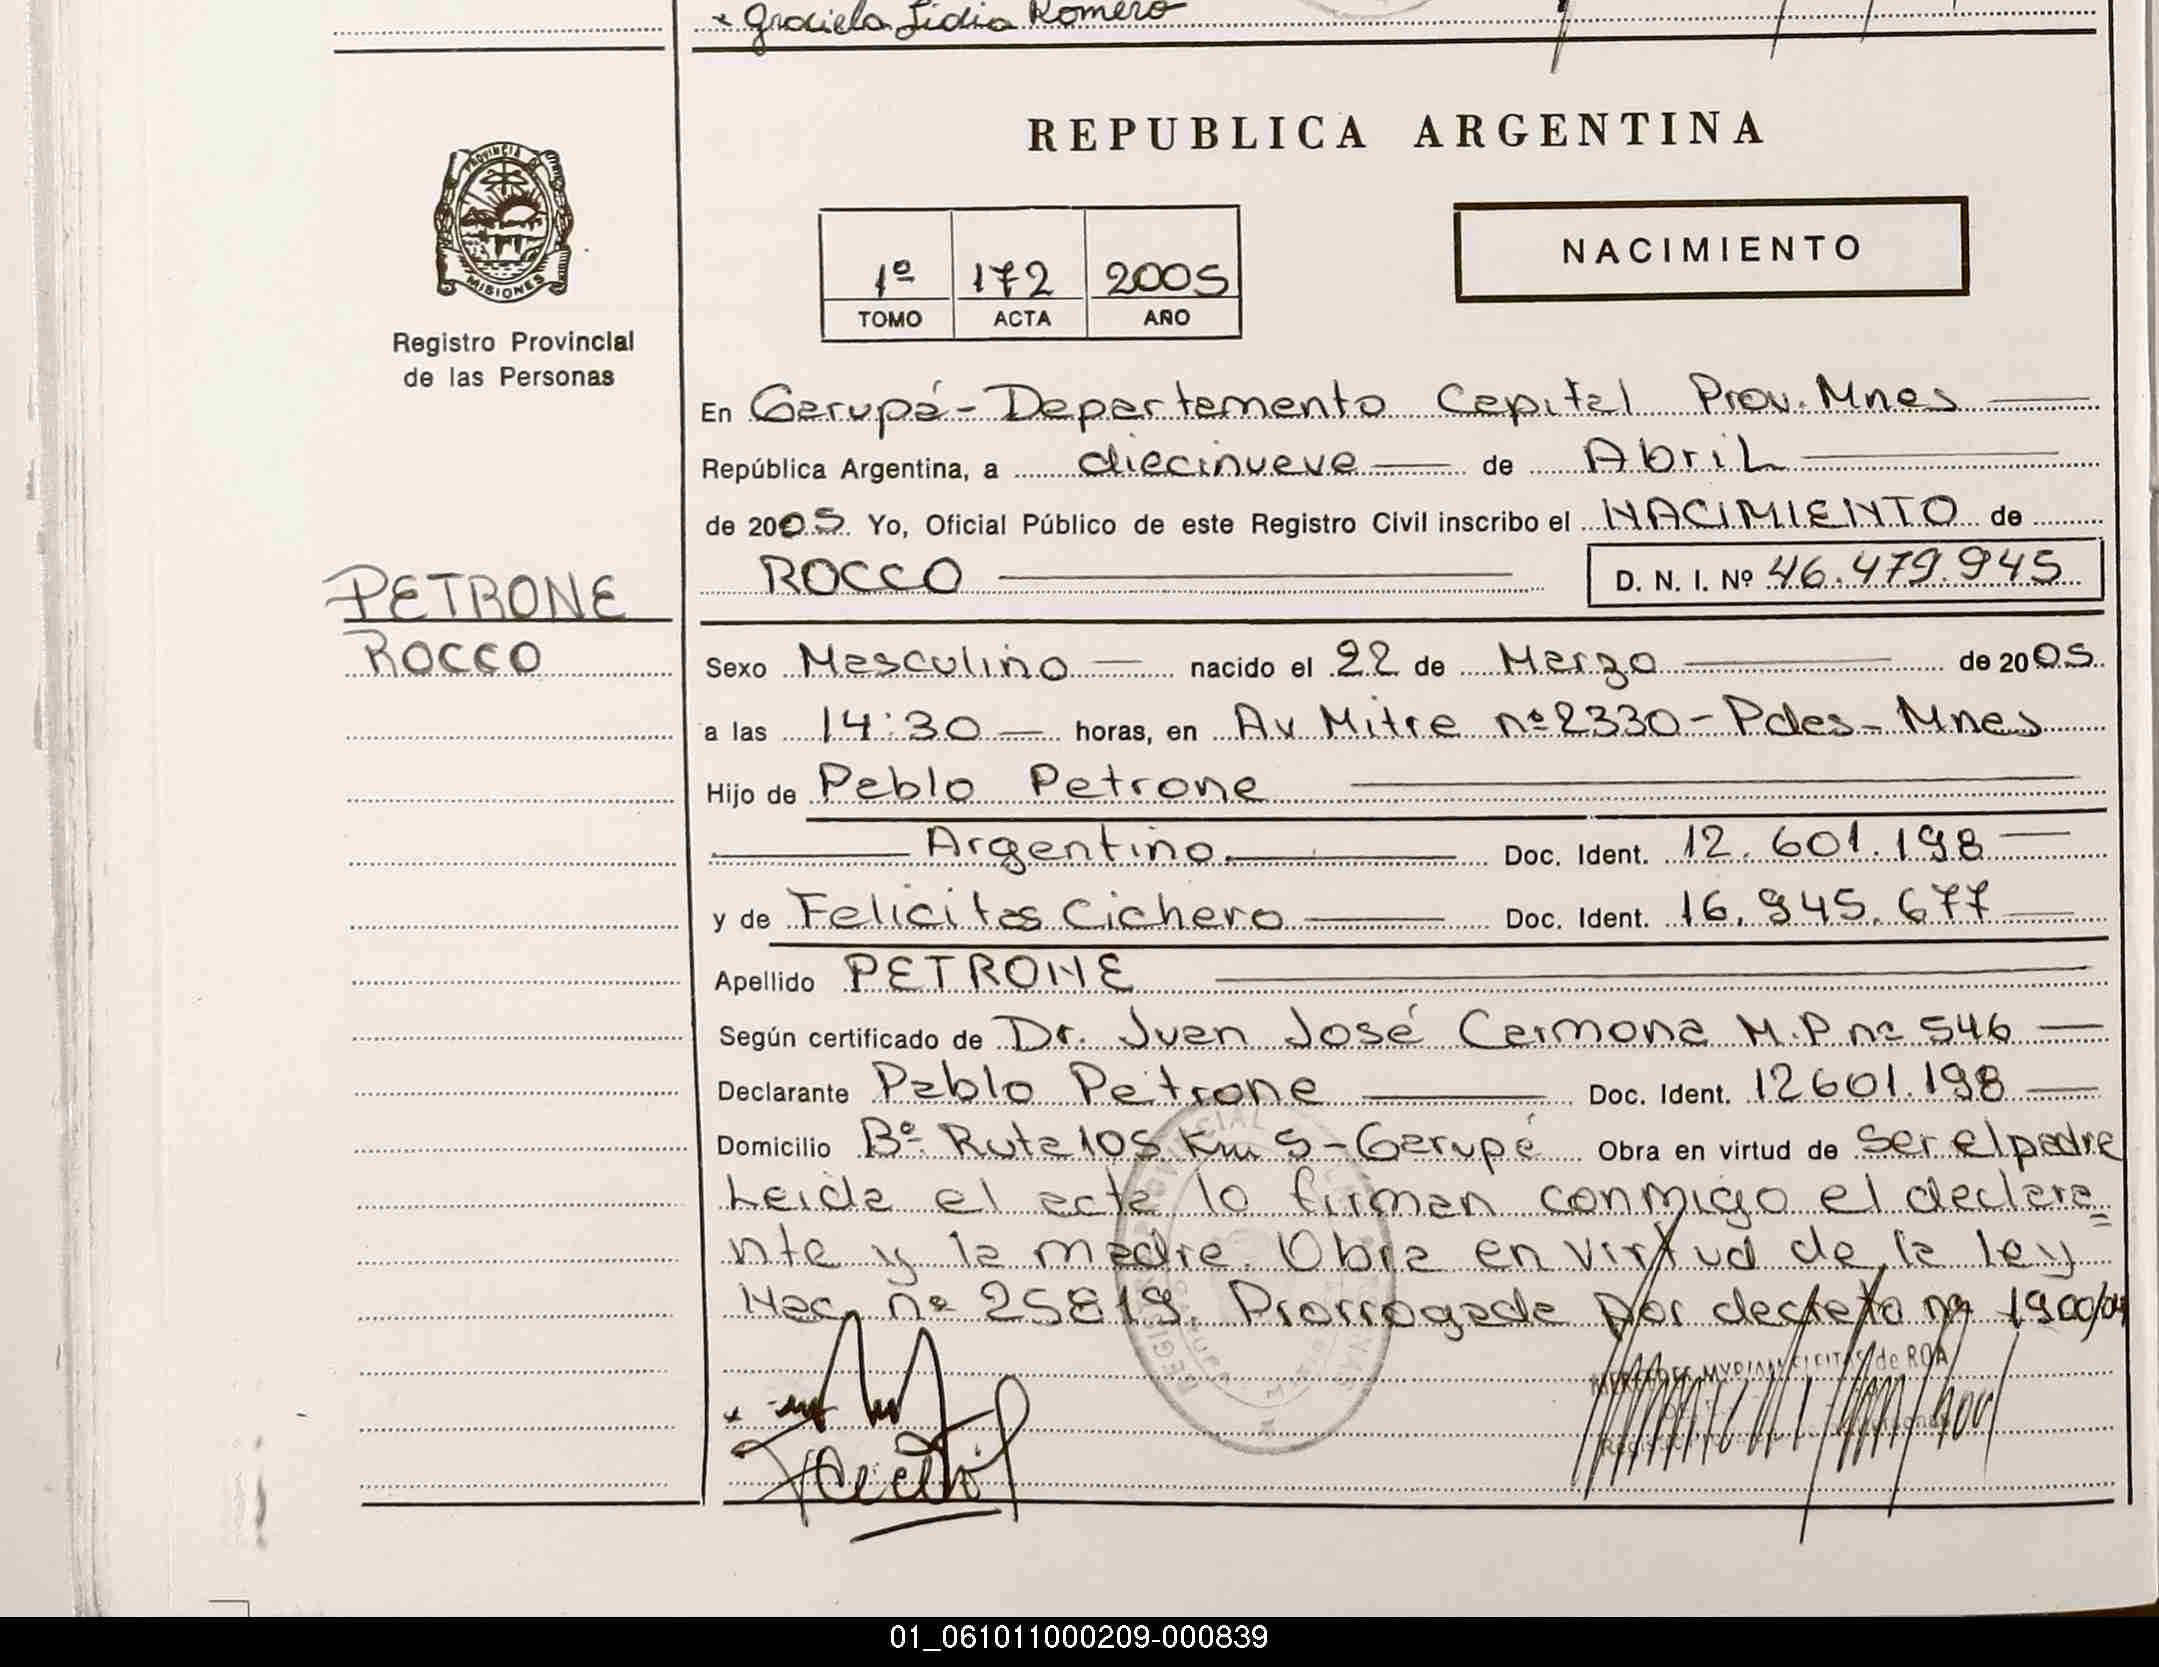 x Graciela Lidia Romero
REPUBLICA ARGENTINA
PROVINCIA DE
MISIONES
1º 172 2005
TOMO ACTA AÑO
NACIMIENTO
Registro Provincial
de las Personas
En Garupá - Departamento Capital Prov. Mnes
República Argentina, a diecinueve de Abril
de 2005 Yo, Oficial Público de este Registro Civil inscribo el NACIMIENTO de
ROCCO D. N. I. Nº 46.479.945
PETRONE
ROCCO
Sexo Masculino nacido el 22 de Marzo de 2005
a las 14:30 horas, en Av Mitre nº 2330 - Pdas - Mnes
Hijo de Pablo Petrone
Argentino Doc. Ident. 12.601.198
y de Felicitas Cichero Doc. Ident. 16.945.677
Apellido PETRONE
Según certificado de Dr. Juan José Carmona M.P nº 546
Declarante Pablo Petrone Doc. Ident. 12601.198
Domicilio Bº Ruta 105 Km 5 - Garupá Obra en virtud de Ser el padre
Leida el acta lo firman conmigo el declara=
nte y la madre. Obra en virtud de la ley
Nac. nº 25819. Prorrogada por decreto nº 1900/04
MERCEDES MYRIAM FLEITAS de ROA
01_061011000209-000839